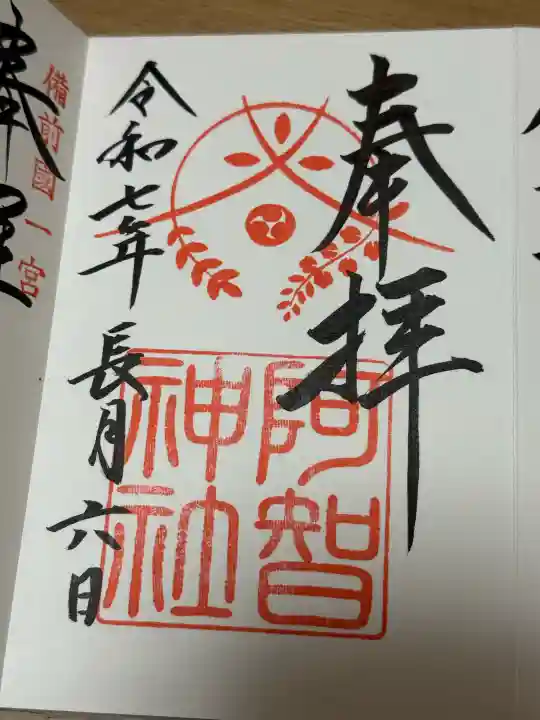 奉拝
阿智
神社
令和七年長月六日
備前國一宮
奉拝